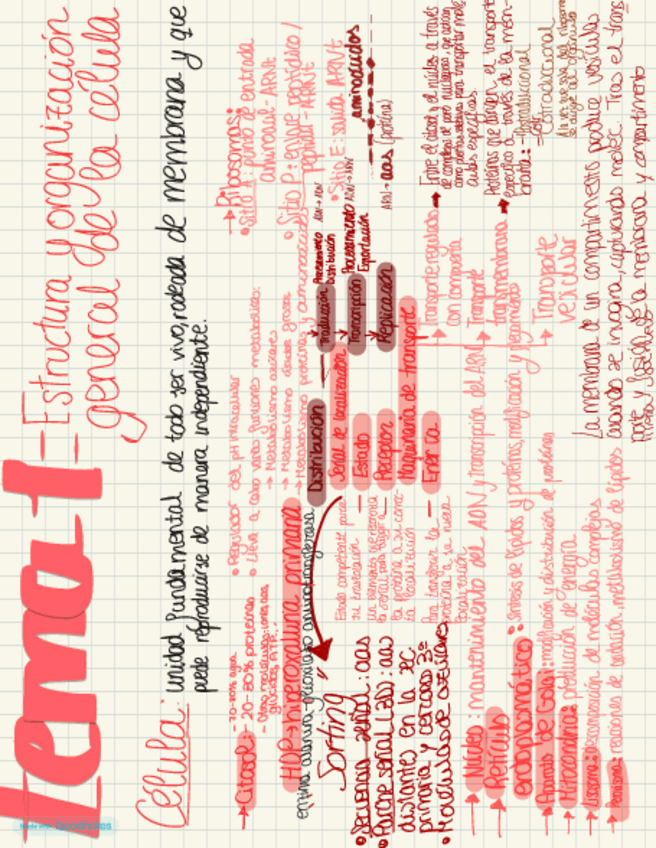 Tema 1
Estructura y organización
general de la célula
Célula: unidad fundamental de todo ser vivo, rodeada de membrana y que
puede reproducirse de manera independiente.
→ Citosol:
- 20-30% proteínas
• Regulador del pH intracelular
• Lleva a cabo varias funciones metabólicas:
→ Metabolismo azúcares
→ Metabolismo ácidos grasos
→ Metabolismo proteínas y aminoácidos
HOP → hiperoxaluria primaria
enzima alanina-glioxilato aminotransferasa
→ Ribosomas:
• Sitio A: punto de entrada
aminoacil-ARNt
• Sitio P: enlace peptídico /
peptidil-ARNt
• Sitio E: salida ARNt
Distribución
Traducción
Procesamiento
Distribución
Transcripción
Procesamiento
Exportación
Replicación
aminoácidos
aas (proteína)
Sorting
• Secuencia señal: aas
• Parche señal (3D): aas
distantes en la sec
primaria y cercano 3º
• Moléculas de azúcares
Señal de localización
Estado
Estado competente para
su translocación
Receptor
Un elemento que reconozca
la señal para dirigir a
la proteína a su correc-
ta localización
Maquinaria de transporte
Para transferir la
proteína a su nueva
localización
Energía
→ Transporte regulado
con compuerta
→ Entre el citosol y el núcleo a través
de complejos de poro nucleares, que actúan
como puertas selectivas para transportar moléc.
→ Transporte
transmembrana
→ Proteínas que dirigen el transporte
específico a través de la mem-
brana:
→ Transporte
vesicular
La membrana de un compartimento produce vesícula
cuando se invagina, capturando moléc. Tras el trans
porte y fusión de la membrana y compartimento
→ Núcleo: mantenimiento del ADN y transcripción del ARN
→ Retículo
endoplasmático: síntesis de lípidos y proteínas, modificación y plegamiento
→ Aparato de Golgi: modificación y distribución de proteínas
→ Mitocondria: producción de energía
→ Lisosoma: degradación de moléculas complejas
→ Peroxisoma: reacciones de oxidación, metabolismo de lípidos
Made with Goodnotes